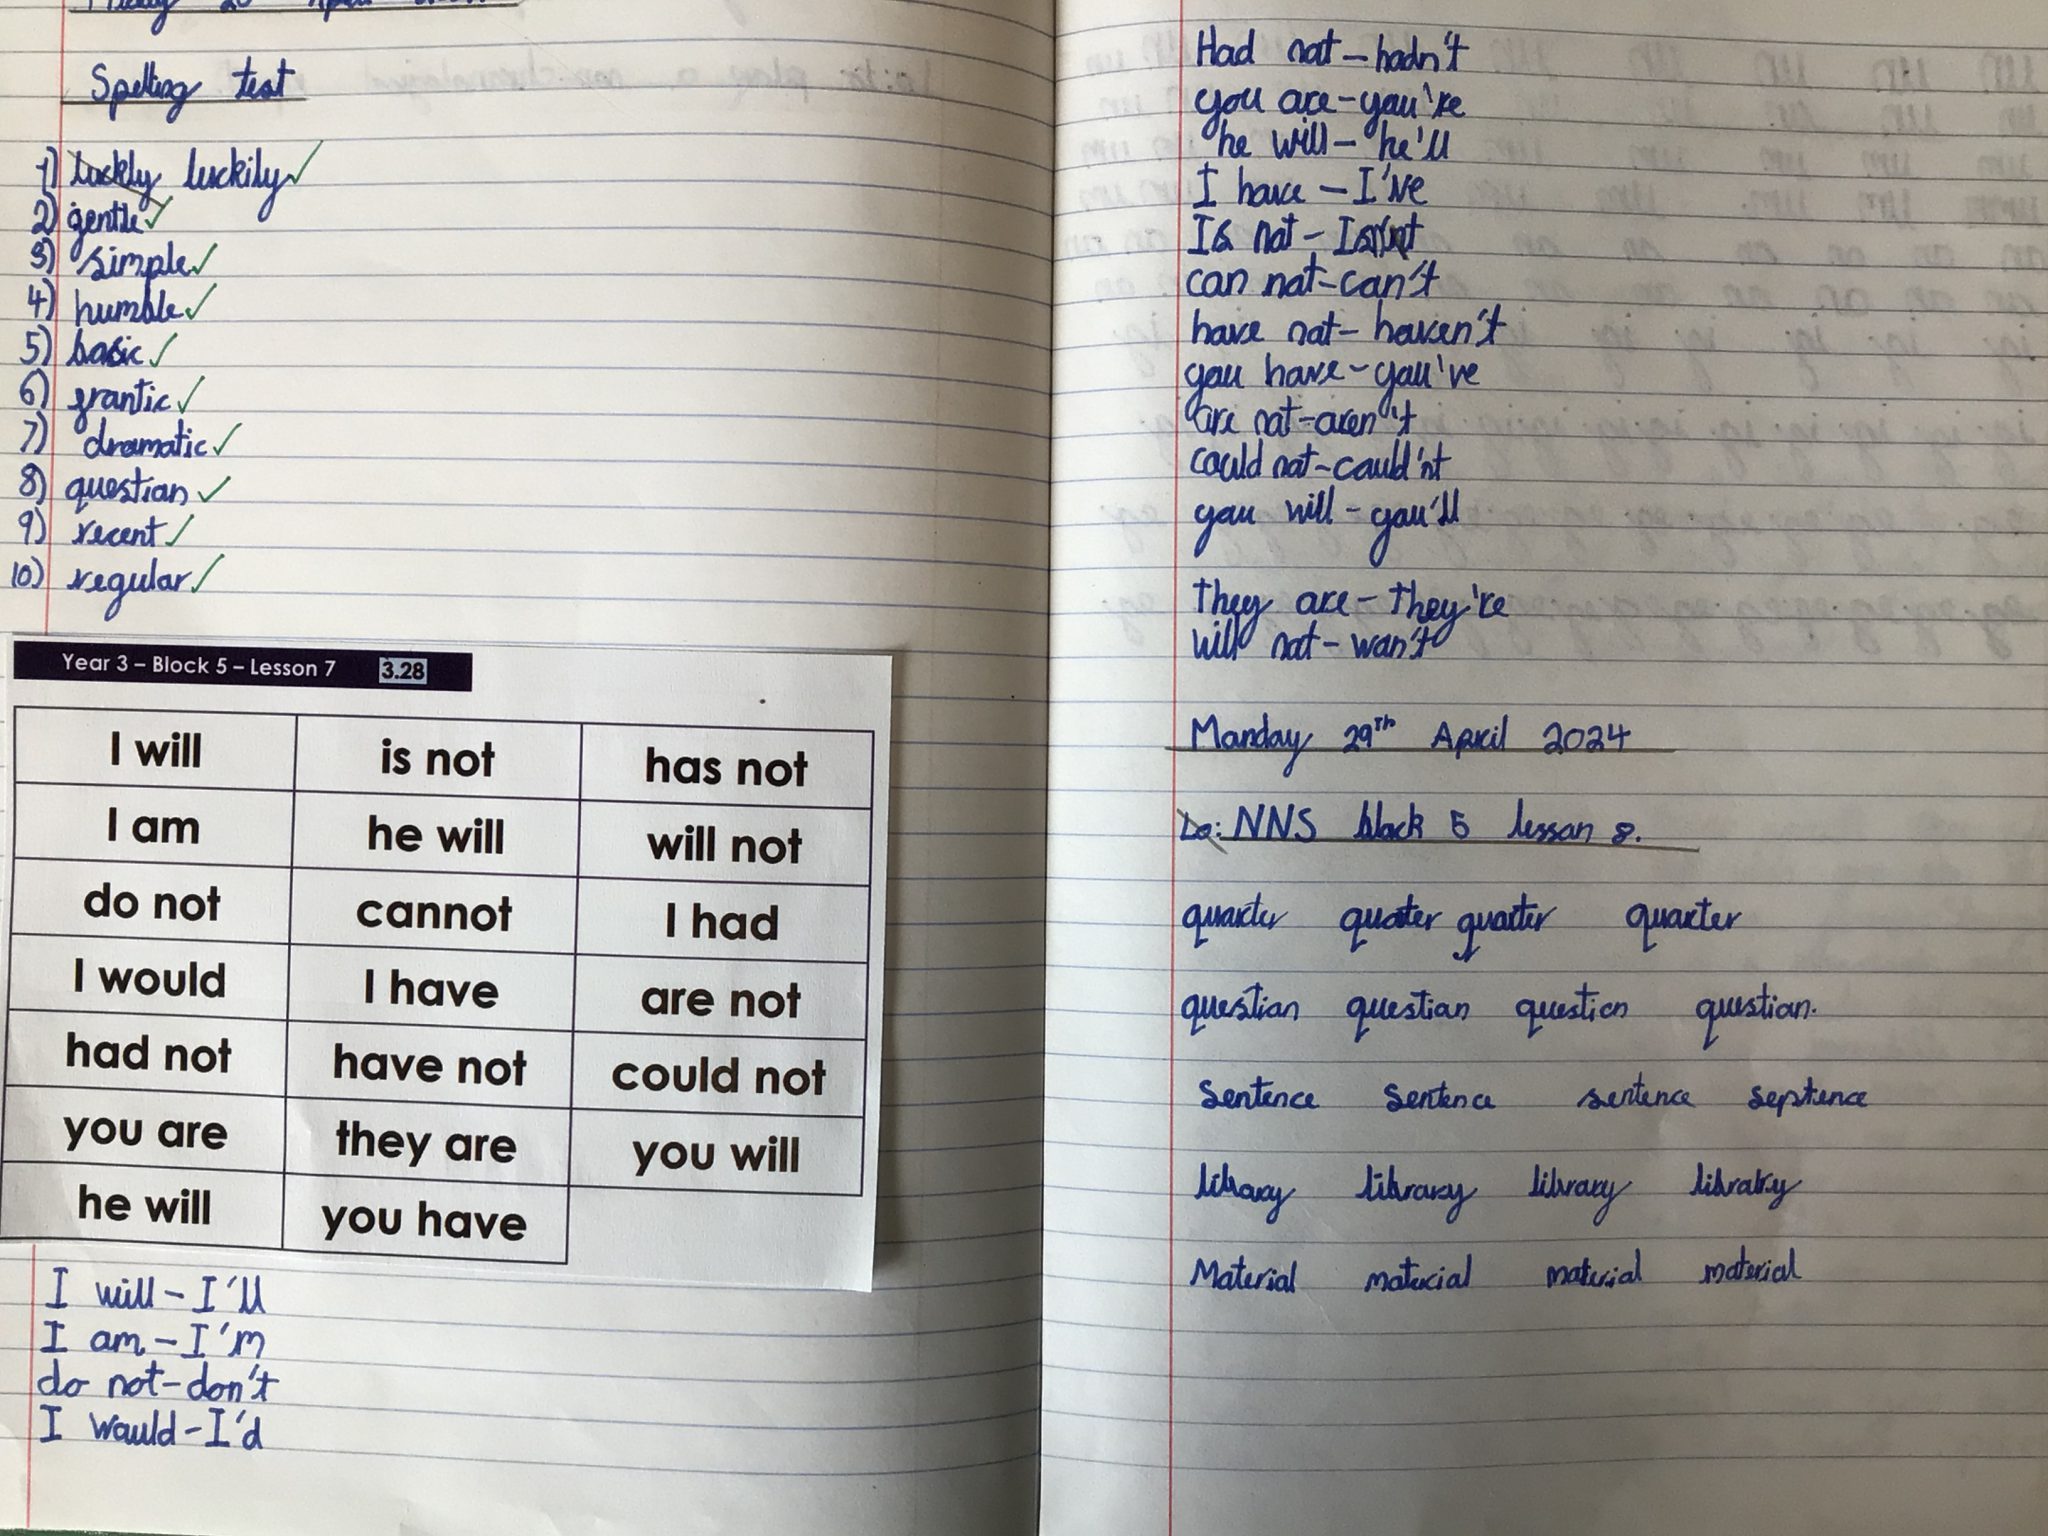 Spelling test
1) luckly luckily
2) gentle
3) simple
4) humble
5) basic
6) frantic
7) dramatic
8) question
9) recent
10) regular
Year 3 – Block 5 – Lesson 7 3.28
I will is not has not
I am he will will not
do not cannot I had
I would I have are not
had not have not could not
you are they are you will
he will you have
I will – I'll
I am – I'm
do not – don't
I would – I'd
Had not – hadn't
you are – you're
he will – he'll
I have – I've
Is not –
can not – can't
have not – haven't
you have – you've
are not – aren't
could not – could'nt
you will – you'll
they are – they're
will not – won't
Monday 29th April 2024
Lo: NNS block 5 lesson 8.
quarter quater quarter quarter
question question question question.
Sentence sentence sentence
library library library
Material material material material